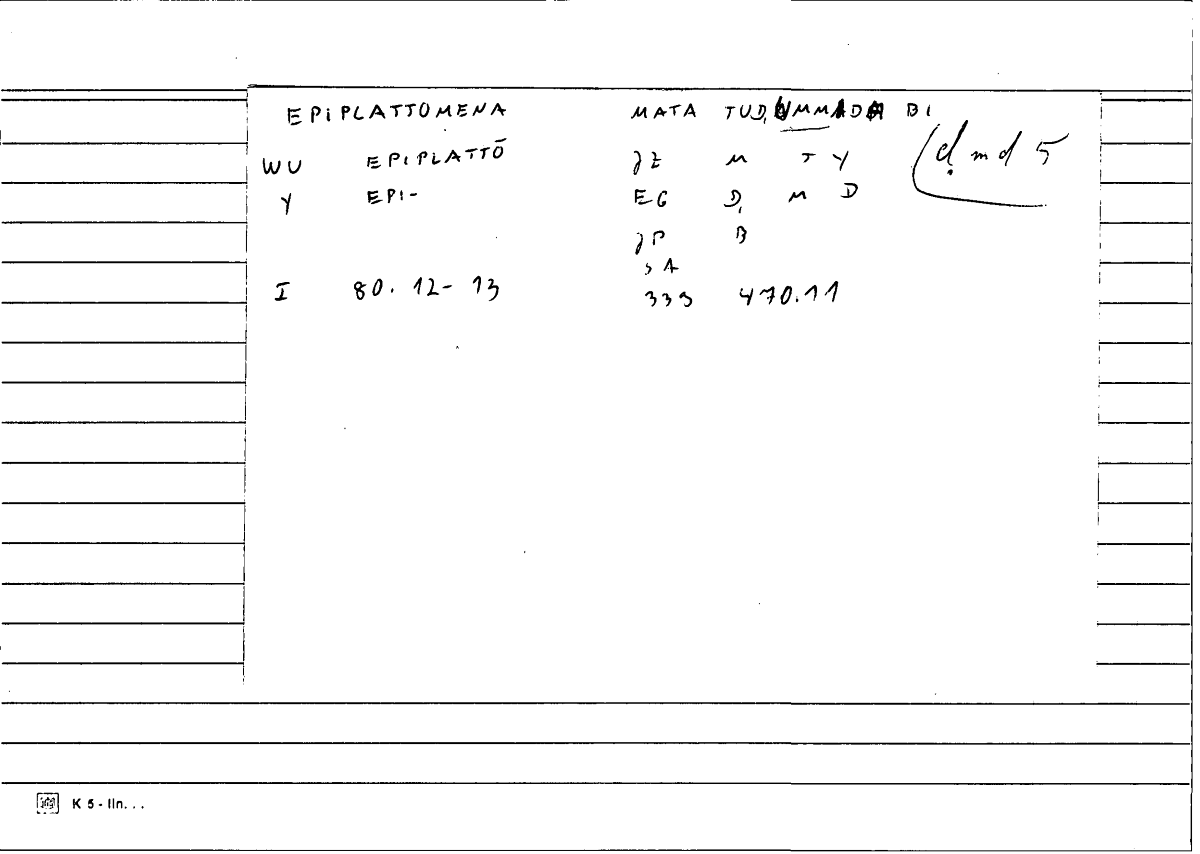 EPIPLATTOMENA MATA TUḌUMMADA BI
WU EPIPLATTŌ JZ M T Y (ḍmd 5
Y EPI- EG Ḍ M D
JP B
SA
I 80.12-13 339 470.11
K 5 - lin. . .